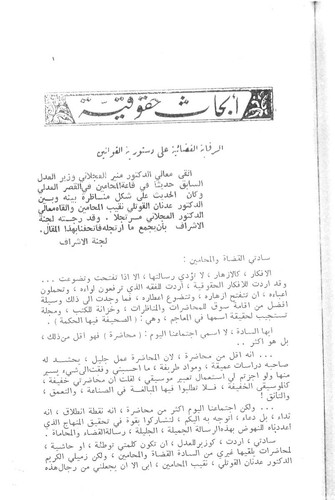 ١
أبحاث حقوقية
الرقابة القضائية على دستورية القوانين
ألقى معالي الدكتور منير العجلاني وزير العدل
السابق حديثا في قاعة المحامين في القصر العدلي
وكان الحديث على شكل مناظرة بينه وبين
الدكتور عدنان القوتلي نقيب المحامين والقاه معالي
الدكتور العجلاني مرتجلا . وقد رجته لجنة
الاشراف بأن يجمع ما ارتجله فأتحفنا بهذا المقال.
لجنة الاشراف
سادتي القضاة والمحامين :
الافكار ، كالازهار ، لا تؤدي رسالتها ، الا اذا تفتحت وتضوعت ...
وقد اردت للأفكار الحقوقية ، اردت للفقه الذي ترفعون لواءه ، وتحملون
اعباءه ، ان تتفتح ازهاره ، وتتضوع اعطاره ، فما وجدت الى ذلك وسيلة
افضل من اقامة سوق للمحاضرات والمناظرات ، وخزانة للكتب ، ومجلة
تستجيب لحقيقة اسمها في المعاجم ، وهي : ( الصحيفة فيها الحكمة ) .
ايها السادة ، لا اسمي اجتماعنا اليوم : ( محاضرة ) فهو أقل من ذلك ،
بل هو اكثر ..
... انه اقل من محاضرة ، لان المحاضرة عمل جليل ، يحتشد له
صاحبه دراسات عميقة ، ومواد طريفة ، ما احسبني وفقت الى شيء يسير
منها ولو اجترأتم لي استعمال تعبير موسيقي ، لقلت أن محاضرتي خفيفة ،
كالموسيقى الخفيفة ، فلا تطلبوا فيها المبالغة في الصناعة ، والتعمق ،
والتأنق !
... ولكن اجتماعنا اليوم أكثر من محاضرة ، انه نقطة انطلاق ، انه
نداء ، بل دعاء ، أتوجه به اليكم ، لتشاركوا بقوة في تحقيق المنهاج الذي
اعددناه للنهوض بهذه الرسالة الجميلة ، الجليلة ، رسالة القضاء والمحاماة .
سادتي ، اردت ، كوزير للعدل ، ان تكون كلمتي توطئة ، او حاشية ،
لمحاضرات يلقيها غيري من السادة القضاة والمحامين ، ولكن زميلي الكريم
الدكتور عدنان القوتلي ، نقيب المحامين ، ابى الا ان يجعلني من رجال هذه